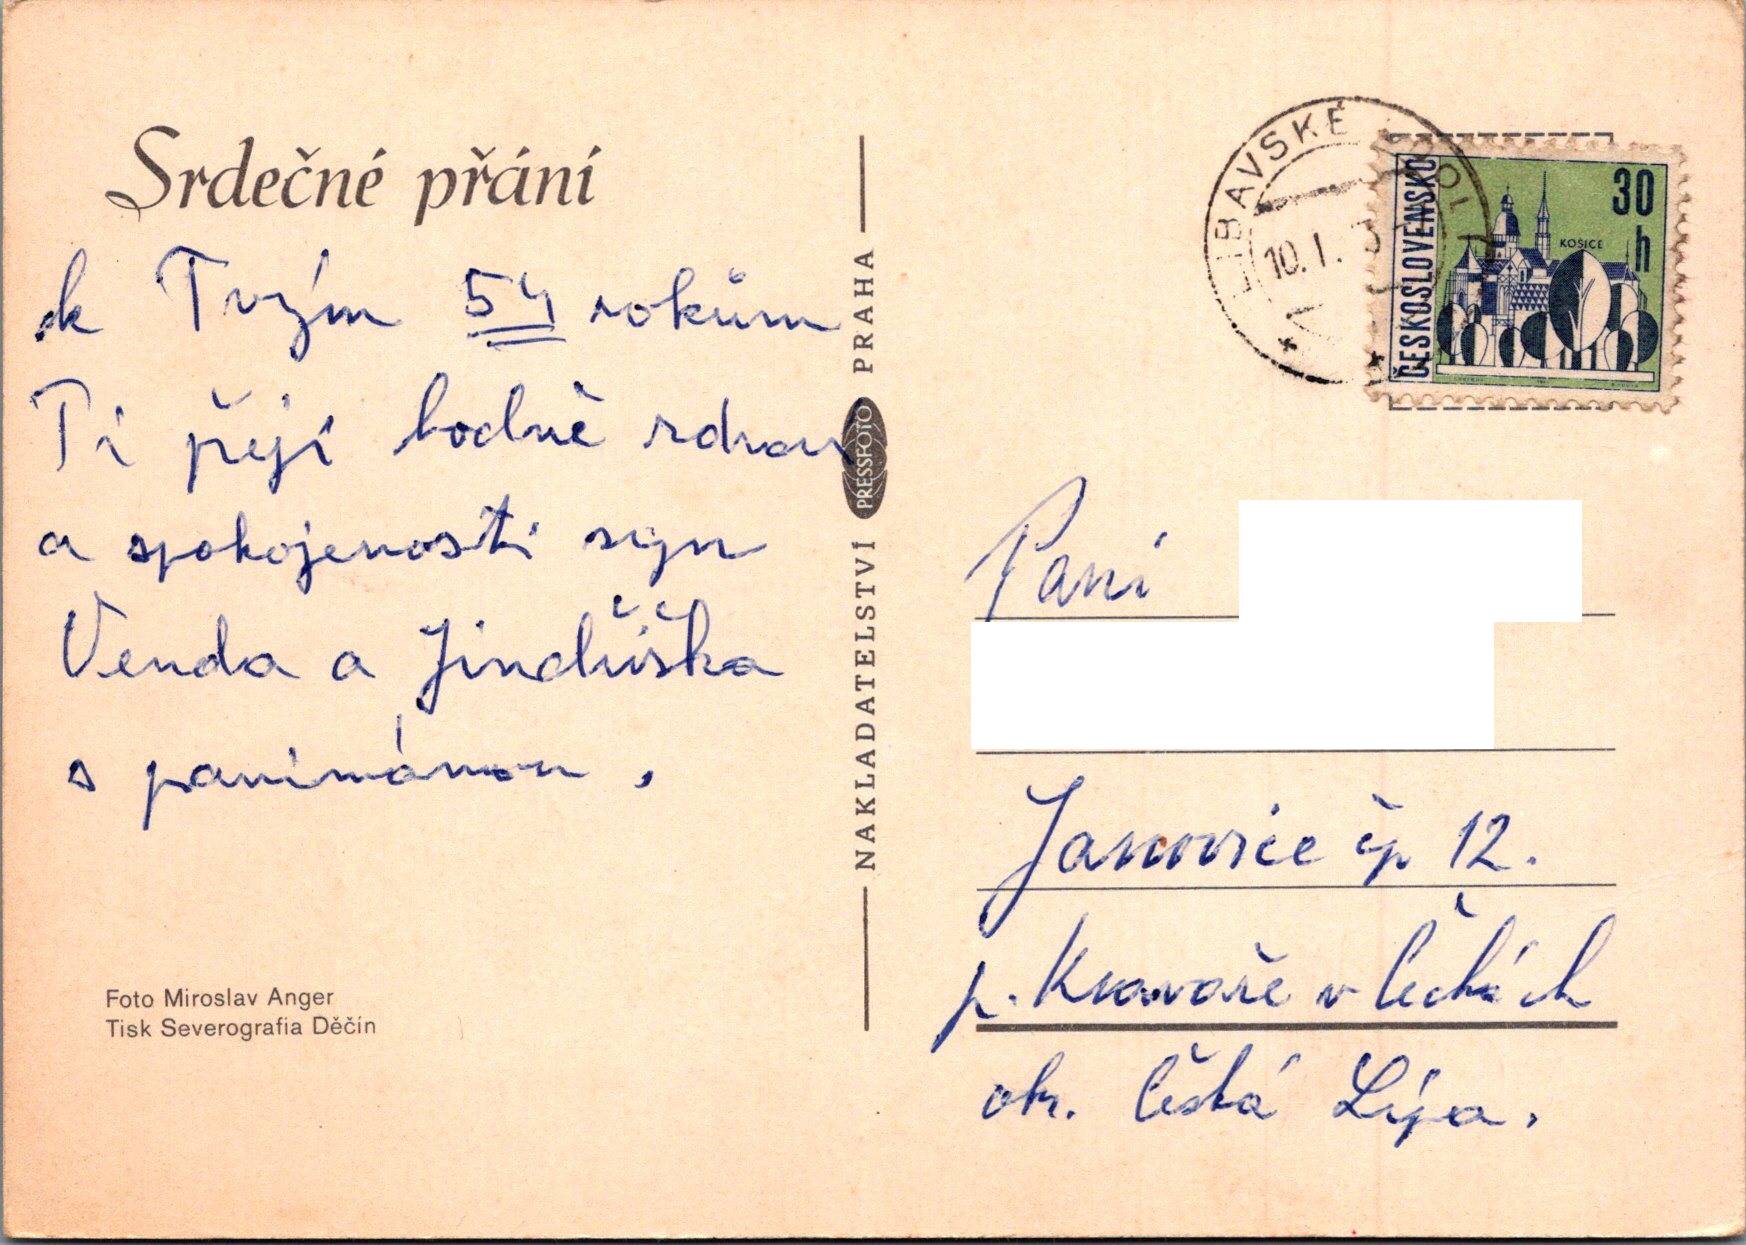 Srdečné přání
k Tvým 54 rokům
Ti přejí hodně zdraví
a spokojenosti syn
Venda a Jindřiška
s panímámou.
Foto Miroslav Anger
Tisk Severografia Děčín
NAKLADATELSTVÍ PRESSFOTO PRAHA
LIBAVSKÉ
10. I.
ČESKOSLOVENSKO
30 h
KOŠICE
Paní
Janovice čp 12.
p. Kravaře v Čechách
okr. Česká Lípa.